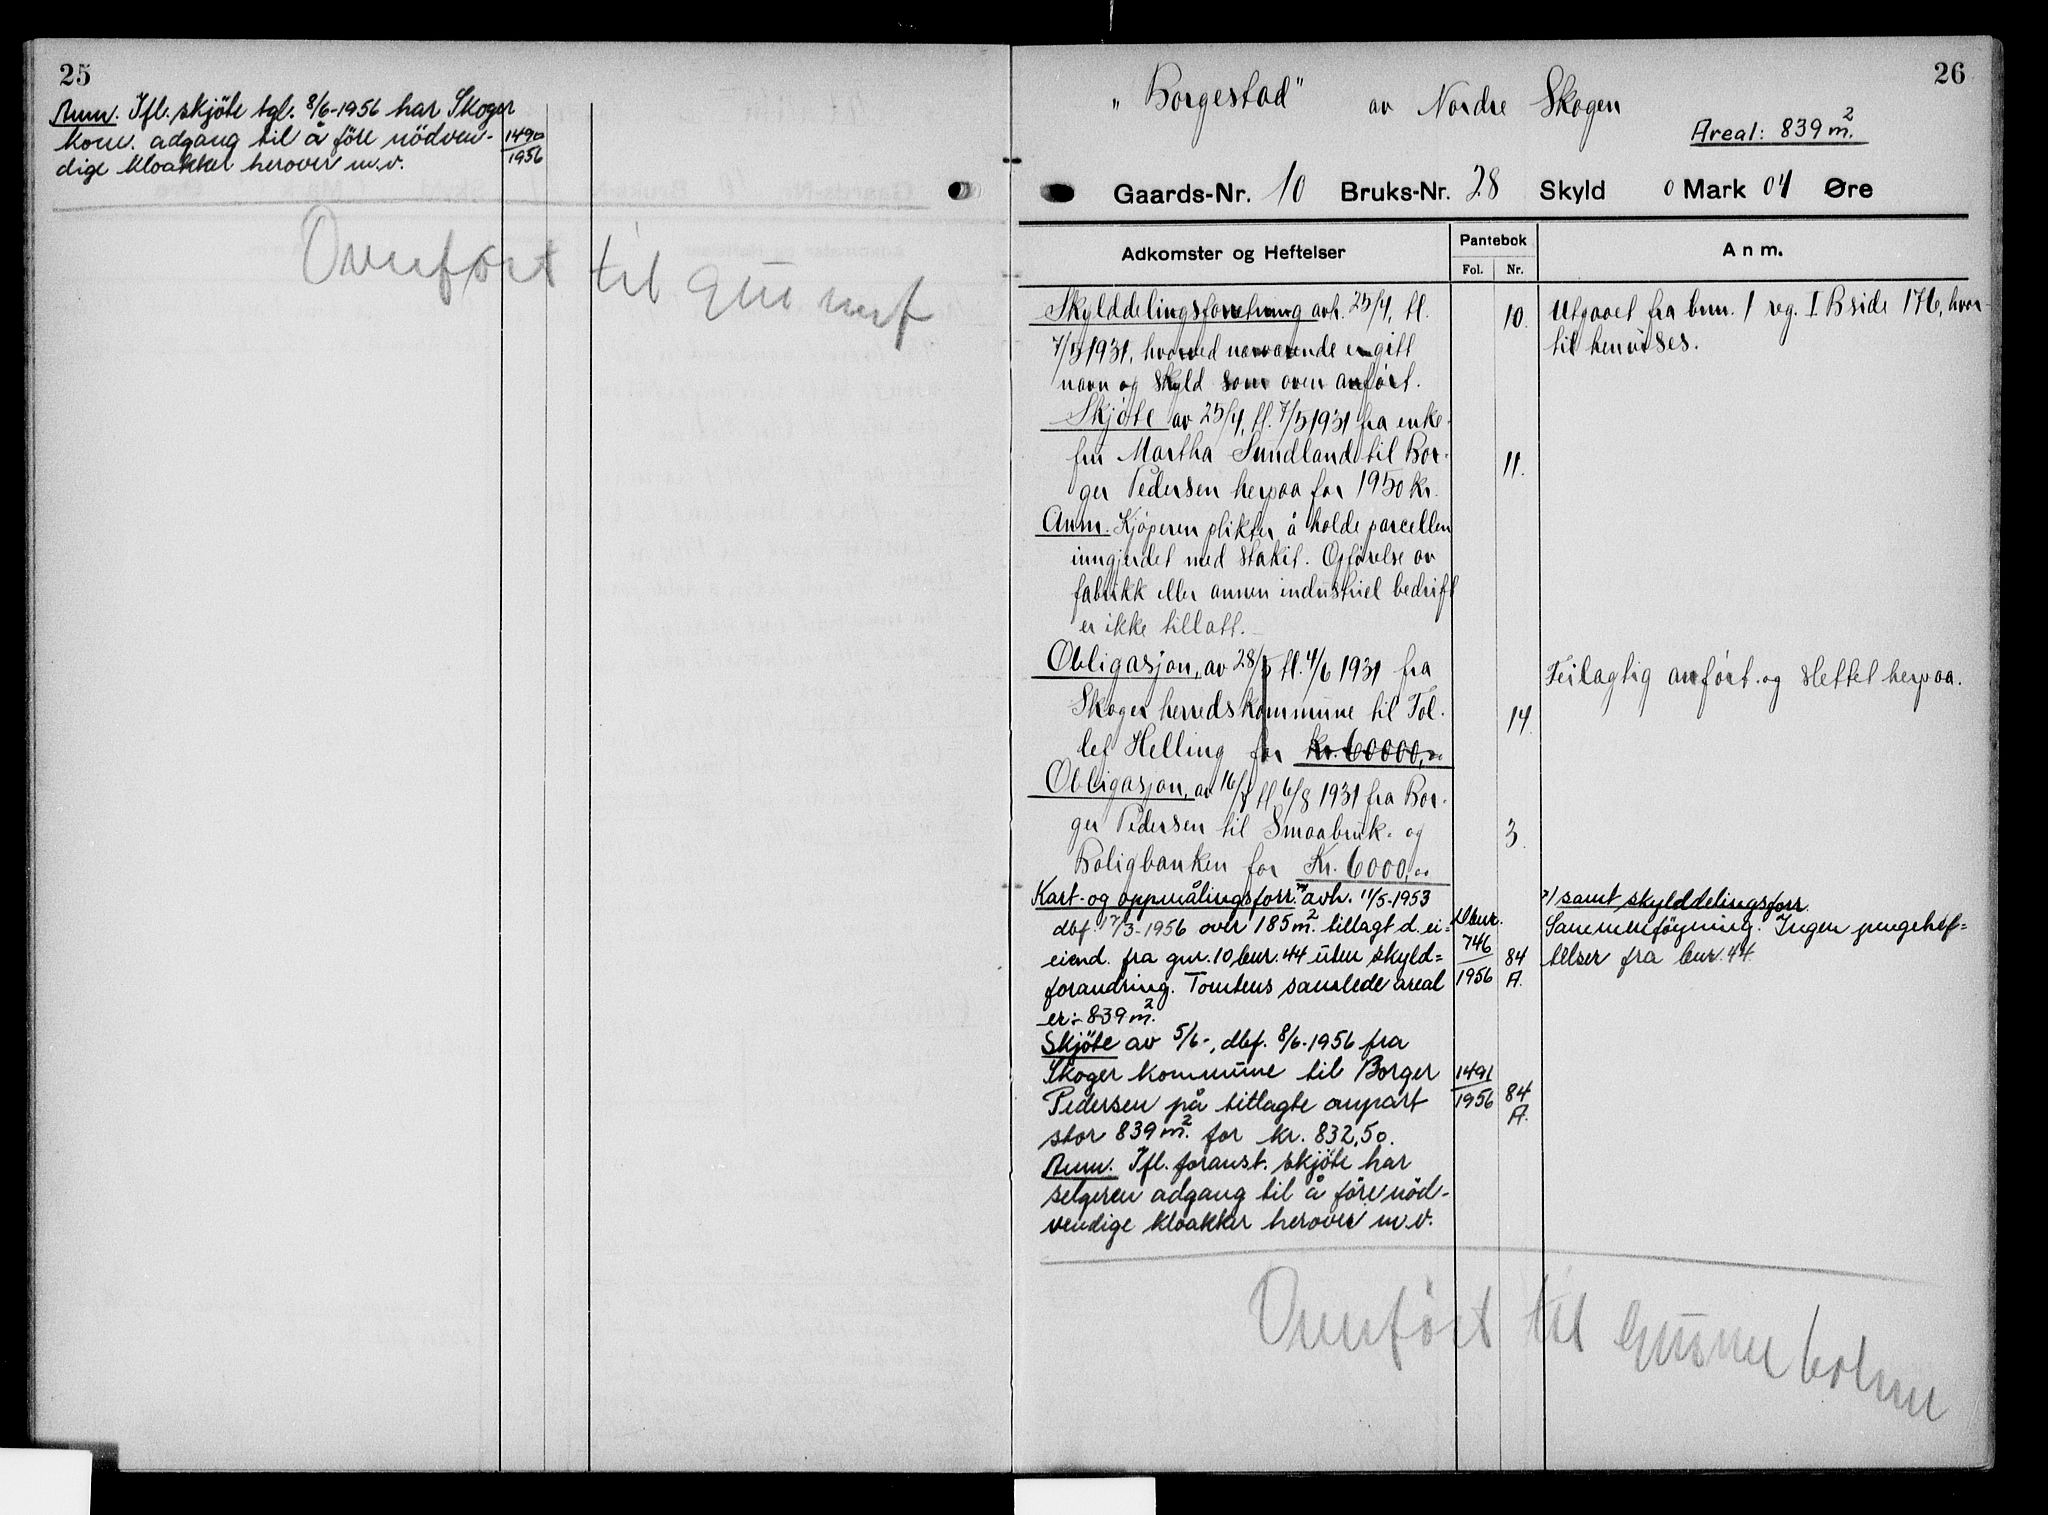 25
Anm. Ifl. skjöte tgl. 8/6-1956 har Skoger
kom. adgang til å före nödven-
dige kloakker herover m.v.
1490
1956
Overført til
26
"Borgestad" av Nordre Skogen
Areal: 839 m².
Gaards-Nr. 10 Bruks-Nr. 28 Skyld 0 Mark 04 Øre
Adkomster og Heftelser
Pantebok
Fol. Nr.
Anm.
Skylddelingsforretning avh. 25/4, tl.
7/5 1931, hvorved nærværende er gitt
navn og skyld som oven anført.
10.
Utgaaet fra bnr. 1 reg. I B side 176, hvor-
til henvises.
Skjøte av 25/4, tl. 7/5 1931 fra enke-
fru Martha Sundland til Bor-
ger Pedersen herpaa for 1950 kr.
11.
Anm. Kjøperen plikter å holde parcellen
inngjerdet med stakit. Opførelse av
fabrikk eller annen industriel bedrift
er ikke tillatt.
Obligasjon, av 28/5 tl. 4/6 1931 fra
Skoger herredskommune til Tol-
lef Helling for Kr. 60000,00
14.
Feilagtig anført og slettet herpaa.
Obligasjon, av 16/7 tl 6/8 1931 fra Bor-
ger Pedersen til Smaabruk- og
Boligbanken for Kr. 6000,00
3.
Kart- og oppmålingsforr. x) avh. 11/5-1953
dbf. 17/3-1956 over 185 m². tillagt d. ei=
eiend. fra gnr. 10 bnr. 44 uten skyld=
forandring. Tomtens samlede areal
er:- 839 m².
Dbnr.
746
1956
84
A.
x) samt skylddelingsforr.
Sammenföyning. Ingen pengehef=
telser fra bnr. 44
Skjöte av 5/6-, dbf. 8/6-1956 fra
Skoger kommune til Borger
Pedersen på tillagte anpart
stor 839 m². for kr. 832,50.
1491
1956
84
A.
Anm. Ifl. foranst. skjöte har
selgeren adgang til å före nöd-
vendige kloakker herover m.v.
Overført til